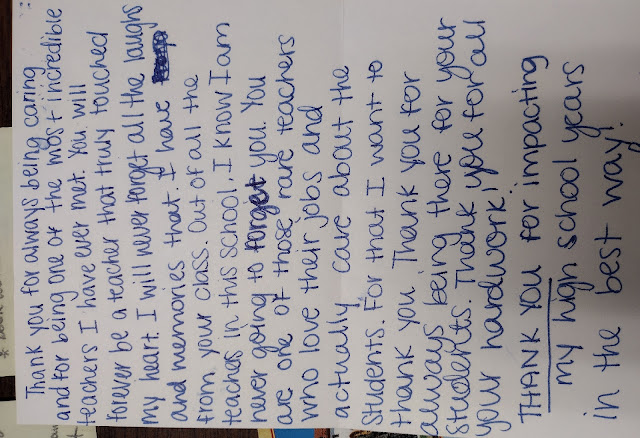 Thank you for always being caring
and for being one of the most incredible
teachers I have ever met. You will
forever be a teacher that truly touched
my heart. I will never forget all the laughs
and memories that I have
from your class. Out of all the
teaches in this school, I know I am
never going to forget you. You
are one of those rare teachers
who love their jobs and
actually care about the
students. For that I want to
thank you. Thank you for
always being there for your
students. Thank you for all
your hardwork!
THANK YOU for impacting
my high school years
in the best way.